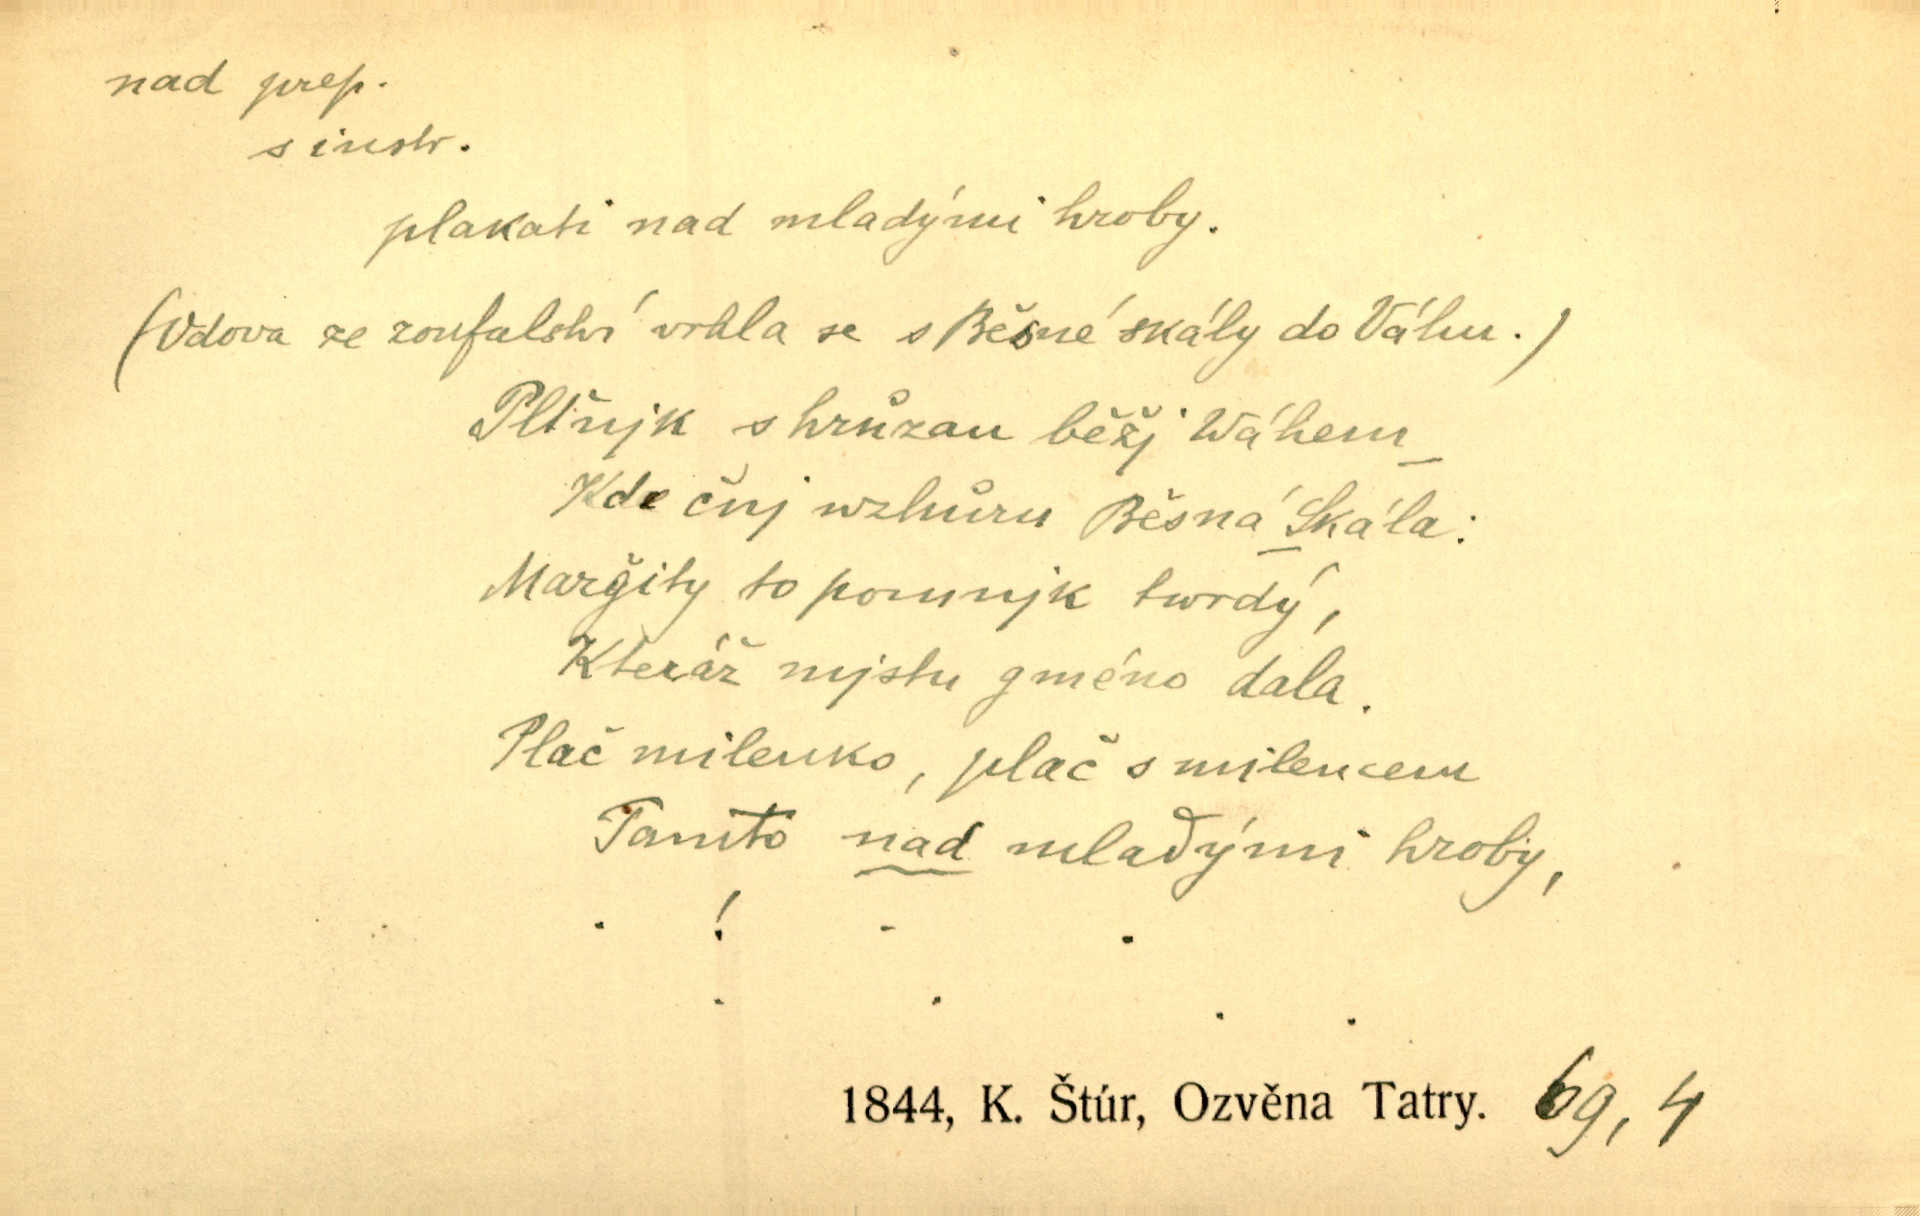 nad prep.
s instr.
plakati nad mladými hroby.
(Vdova ze zoufalství vrhla se s Běsné skály do Váhu.)
Pltňjk s hrůzau běžj Wáhem_
Kde čnj wzhůru Běsná Skála:
Marğity to pomnjk twrdý,
Kteráž mjstu gméno dala.
Plač milenko, plač s milencem
Tamto nad mladými hroby,
. ! - .
. . . .
1844, K. Štúr, Ozvěna Tatry. 69, 4